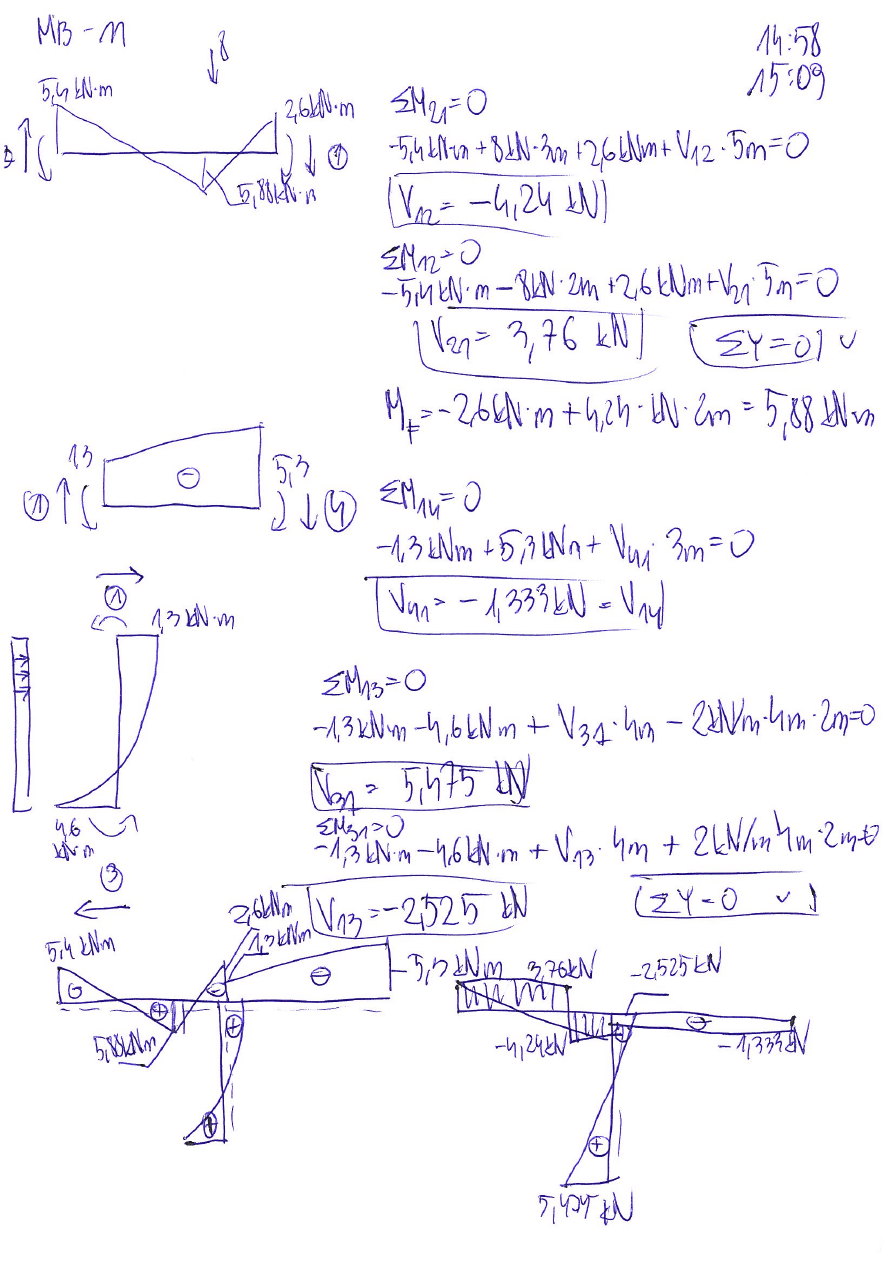 MB-M
14:58
15:09
8
5,4 kN·m
2,6kN·m
1
5,88kN·m
ΣM21=0
-5,4kN·m+8kN·3m+2,6kNm+V12·5m=0
V12= -4,24 kN
ΣM12=0
-5,4kN·m-8kN·2m+2,6kNm+V21·5m=0
V21= 3,76 kN
ΣY=0 ✓
M=-2,6kN·m+4,24·kN·2m=5,88kNm
1,3
5,3
⊖
1
4
ΣM14=0
-1,3kNm+5,3kNm+V41·3m=0
V41= -1,333kN=V14
1
1,3kN·m
4,6
kN·m
3
ΣM13=0
-1,3kNm-4,6kNm+V31·4m-2kN/m·4m·2m=0
V31= 5,475 kN
ΣM31=0
-1,3kN·m-4,6kN·m+V13·4m+2kN/m4m·2m=0
V13=-2,525 kN
ΣY=0 ✓
5,4kNm
2,6kNm
1,3kNm
-5,3kNm
⊖
⊖
⊖
⊕
⊕
⊕
5,88kNm
3,76kN
-2,525kN
-4,24kN
-1,333kN
⊖
⊕
5,475kN